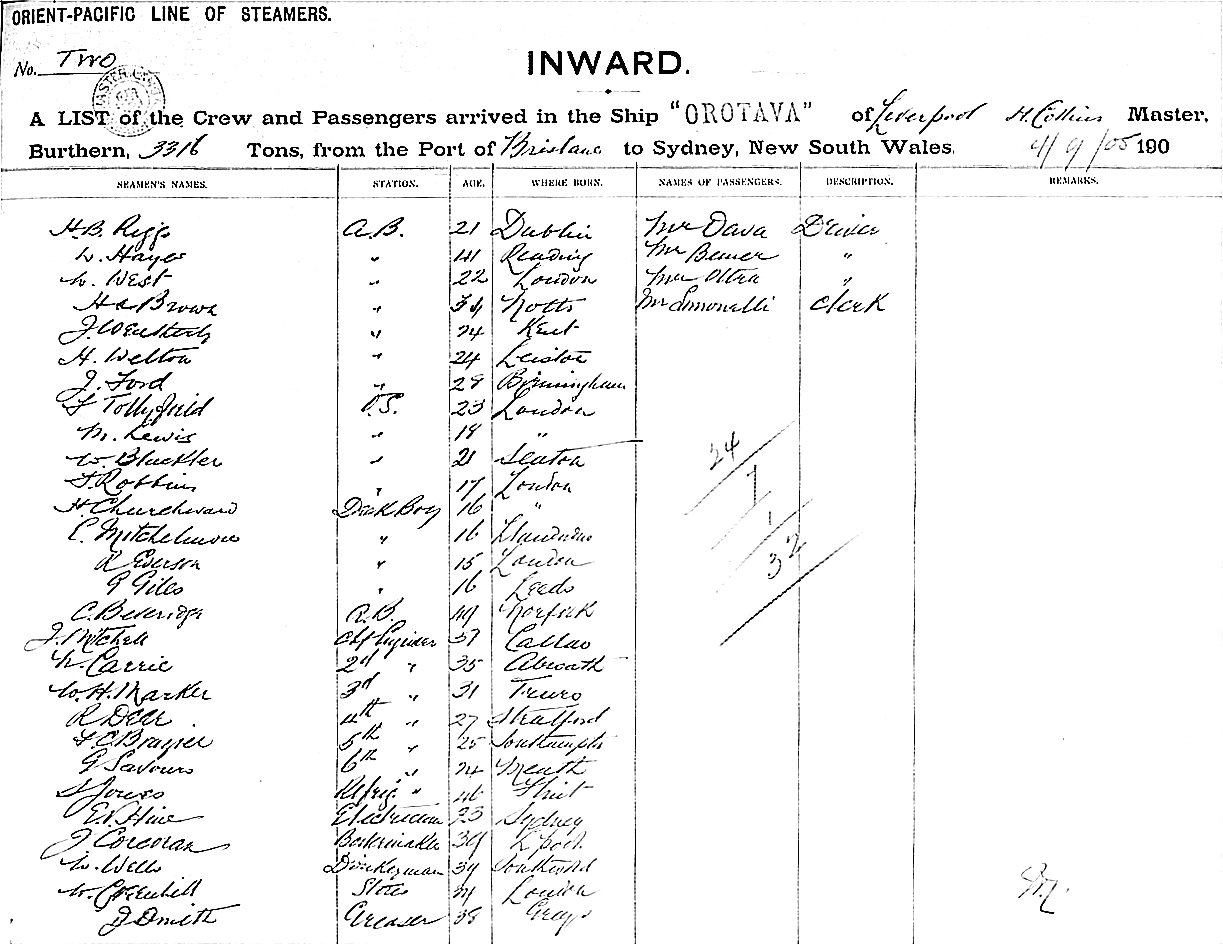 ORIENT-PACIFIC LINE OF STEAMERS.
No. Two
INWARD.
A LIST of the Crew and Passengers arrived in the Ship "OROTAVA" of Liverpool H. Collins Master,
Burthern, 3316 Tons, from the Port of Brisbane to Sydney, New South Wales. 4/9/05 190
SEAMEN'S NAMES. STATION. AGE. WHERE BORN. NAMES OF PASSENGERS. DESCRIPTION. REMARKS.
H.B. Riggs A.B. 21 Dublin Mr Dava Driver
W. Hayes " 41 Reading Mr "
W. West " 22 London Mr "
Brown " 34 Notts Mr Simonelli Clerk
J. " 24 Kent
H. Welton " 24 Leiston
J. Ford " 28 Birmingham
F Tollyfield O.S. 23 London
M. Lewis " 18 "
W. Bluckler " 21 Seaton
F. Robbins " 17 London
H. Churchward Deck Boy 16 "
C. Mitchelmore " 16
R Everson " 15 London
G Giles " 16 Leeds
C. Beveridge A.B. 49 Norfolk
J. Mitchell Chf Engineer 37 Callao
W. Carrie 2nd " 35 Abroath
W. H. Marker 3rd " 31 Truro
R Dear 4th " 27 Stratford
F C Brazier 5th " 25 Southampton
G Savours 6th " 24 Neath
S Jones Refrig. " 46 Flint
E.V. Hine Electrician 23 Sydney
J Corcoran Boilermaker 39 L'pool
W. Wells Donkeyman 39 Southwold
W. Greenhill Stores London
J Smith Greaser 38 Grays
24
7
1
32